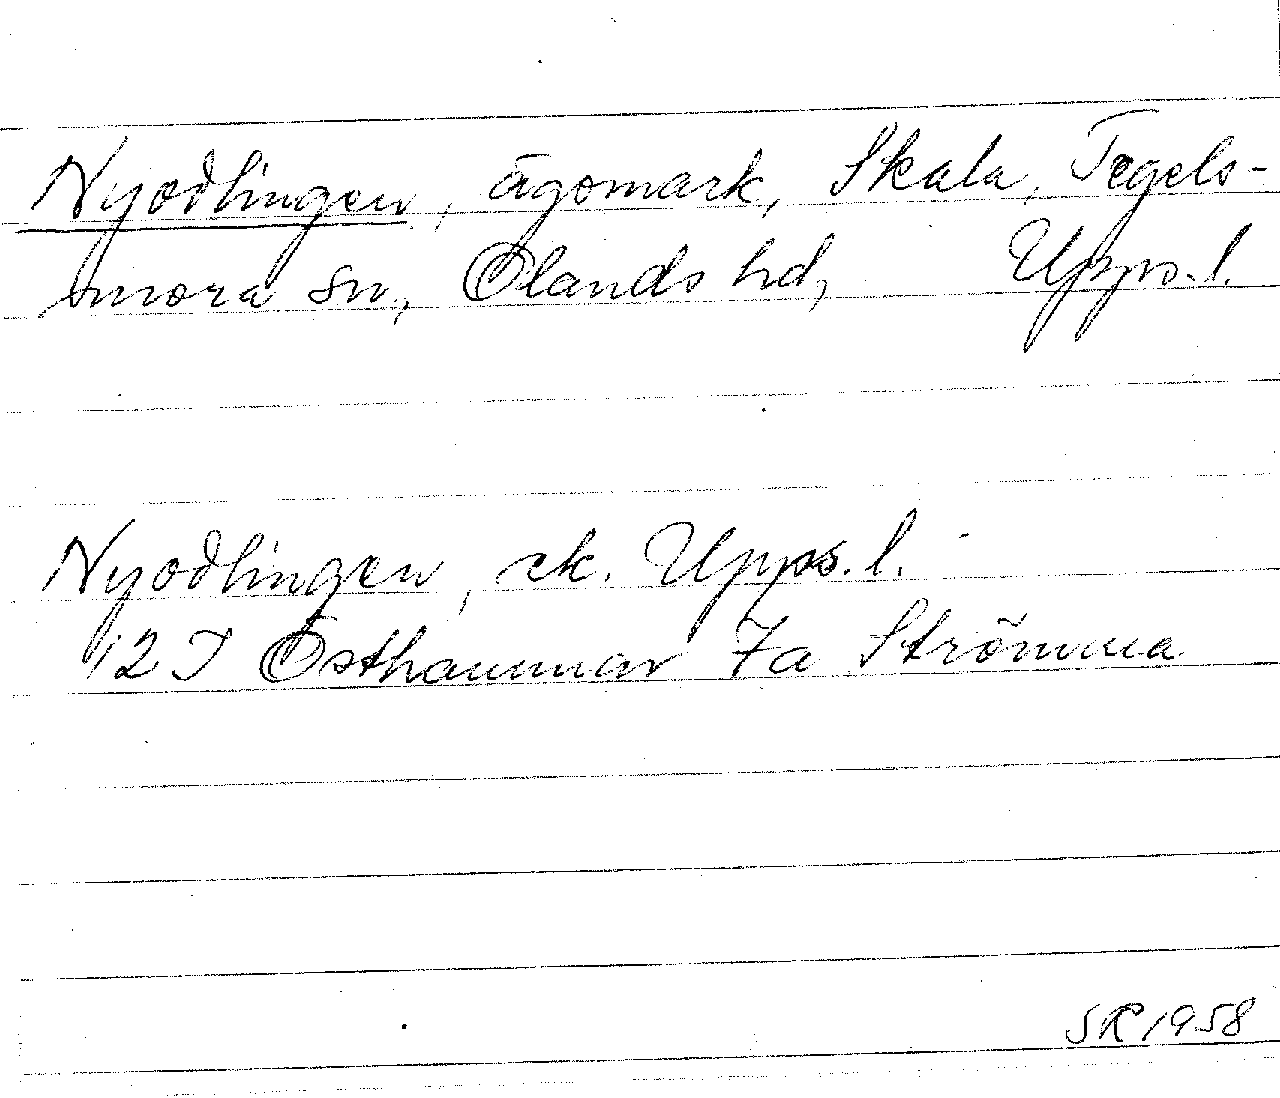 Nyodlingen, ägomark, Skala, Tegels-
mora sn, Ölands hd, Upps. l.
Nyodlingen, ek. Upps. l.
12 I Östhammar 7a Strömma
SR 1958